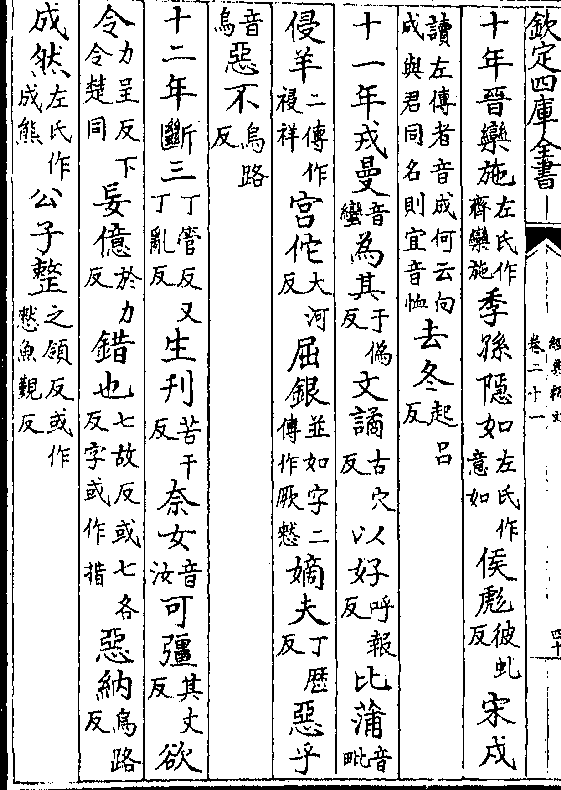 欽定四庫全書
經典釋文
卷二十一
四十
十年晉欒施左氏作齊欒施季孫隱如左氏作意如侯彪彼虬反宋戍
讀左傳者音成何云向成與君同名則宜音恤去冬起呂反
十一年戎曼音蠻為其于偽反文譎古穴反以好呼報反比蒲音毗
侵羊二傳作祲祥宮佗大河反屈銀並如字二傳作厥憖嫡夫丁歷反惡乎
音烏惡不烏路反
十二年斷三丁管反又丁亂反生刊苦干反奈女音汝可彊其丈反欲
令力呈反下令楚同妄億於力反錯也七故反或七各反字或作措惡納烏路反
成然左氏作成熊公子整之領反或作憗魚覲反